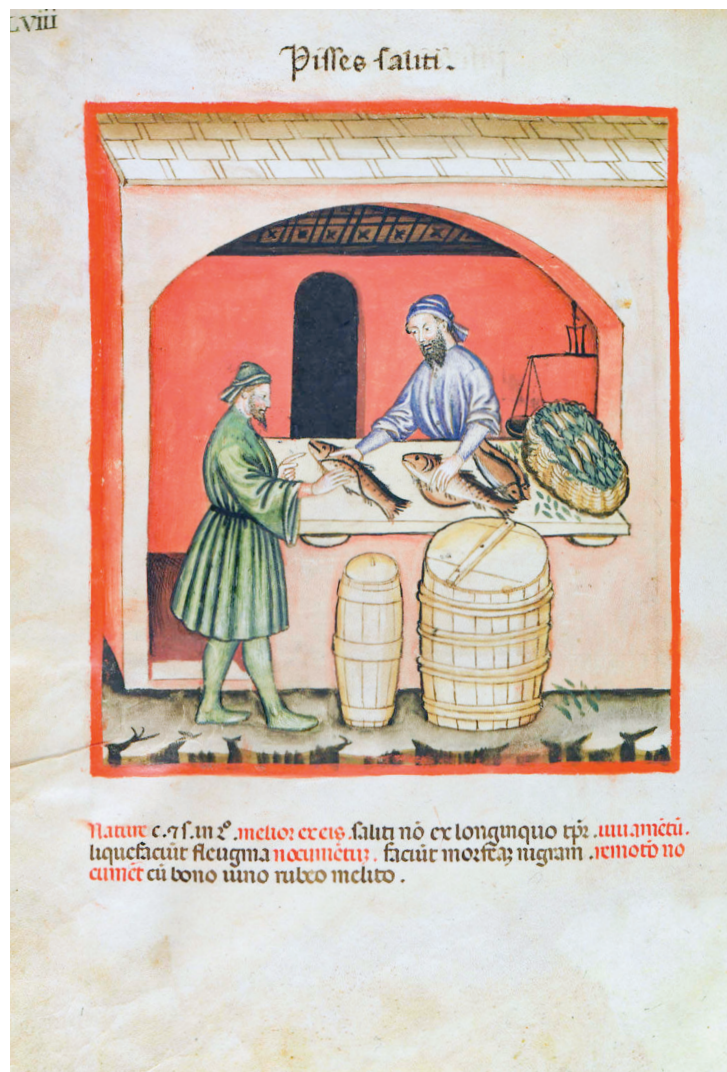 LVIII
Pisses saliti.
Nature c. ⁊ s. in 2º. melior ex eis saliti nō ex longinquo tp̄r. iuuamētū.
liquefaciūt fleugma nocumētū. faciūt morfeaꝫ nigram. remotō no
cumēt cū bono uino rubeo melito.